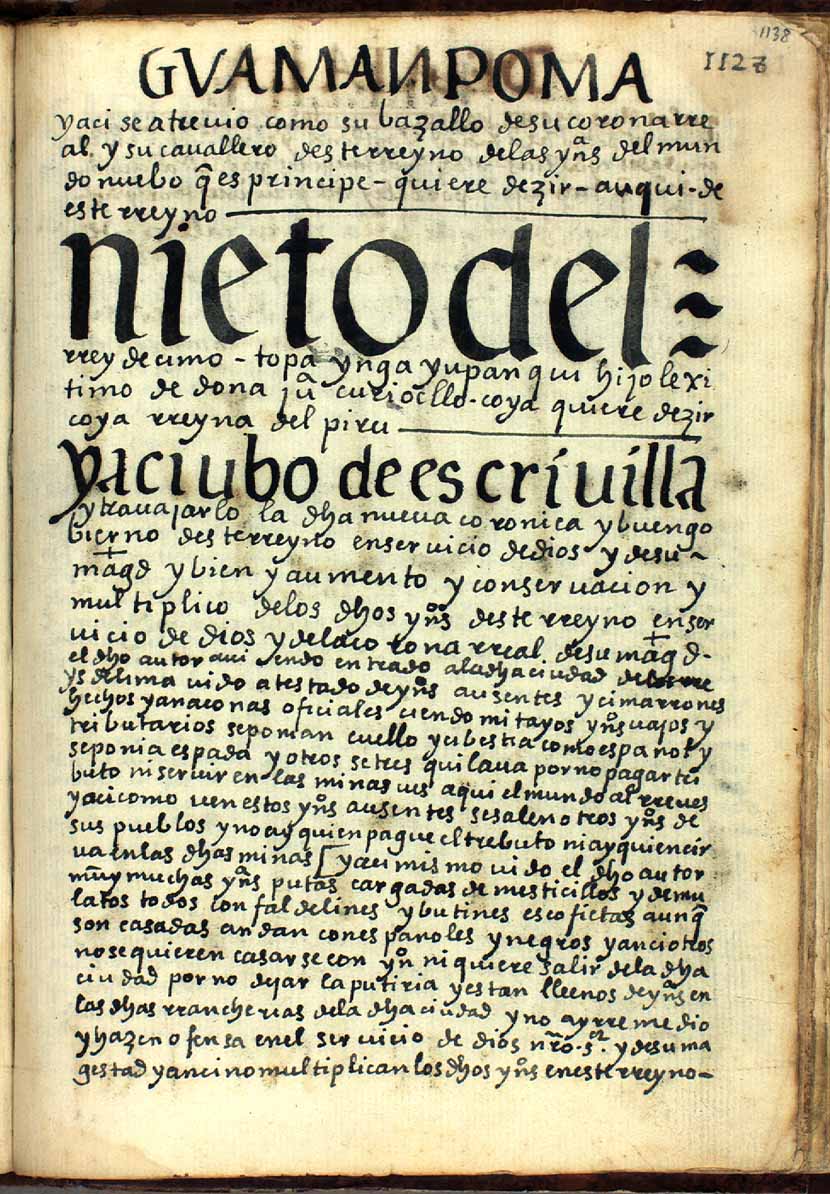 1138
1127
GVAMANPOMA
yaci se atreuio como su bazallo de su corona rre
al y su cavallero deste rreyno de las yñs del mun
do nuebo q̃ es principe - quiere dezir - auqui - de
este rreyno
nieto del
rrey decimo - topa ynga yupanqui hijo lexi
timo de dona jua curi ocllo - coya quiere dezir
coya rreyna del piru
yaci ubo de escriuilla
y trauajarlo la dha nueua coronica y buen go
bierno deste rreyno en seruicio de dios y de su
magd y bien y aumento y conseruacion y
multiplico de los dhos yñs deste rreyno en ser
uicio de dios y de la corona rreal de su magd -
el dho autor aui endo entrado a la dha ciudad de los rre
ys de lima uido atestado de yñs ausentes y cimarrones
hechos yanaconas oficiales ciendo mitayos yñs uajos y
tributarios se ponian cuello y ci bestia como español y
se ponia espada y otros se tres quilaua por no pagar tri
buto ni seruir en las minas ues aqui el mundo al rreues
yaci como uen estos yñs ausentes se salen otros yñs de
sus pueblos y no ay quien pague el trebuto ni ay quien cir
ua en las dhas minas [ yaci mismo uido el dho autor
muy muchas yñs putas cargadas de mesticillos y de mu
latos todos con faldelines y butines escofietas aunq̃
son casadas andan con españoles y negros y anci otros
no se quieren casarse con yño ni quiere salir de la dha
ciudad por no dejar la putiria y estan lleenos de yñs en
las dhas rrancherias de la dha ciudad y no ay rremedio
y hazen ofensa en el seruicio de dios nro. sr. y de su ma
gestad y anci no multiplican los dhos yñs en este rreyno -